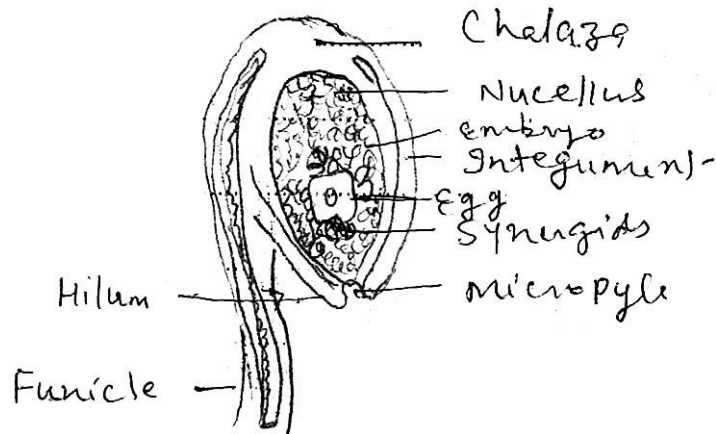 Chalaza
Nucellus
embryo
Integument
Egg
Synergids
Micropyle
Hilum
Funicle